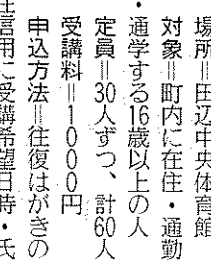 場所＝田辺中央体育館
対象＝町内に在住・通勤
・通学する16歳以上の人
定員＝30人ずつ、計60人
受講料＝1000円
申込方法＝往復はがきの
信用に受講希望日時・氏